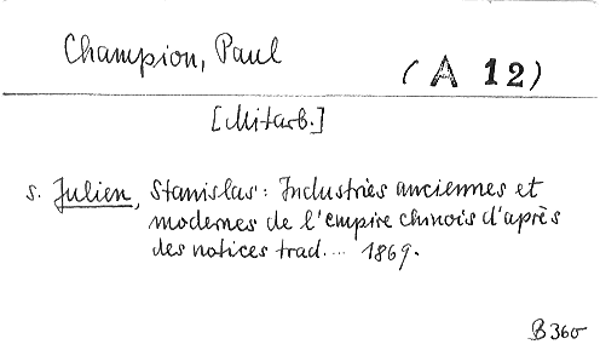 Champion, Paul
(A 12)
[Mitarb.]
s. Julien, Stanislas: Industries anciennes et
modernes de l'empire chinois d'après
des notices trad.... 1869.
B 360